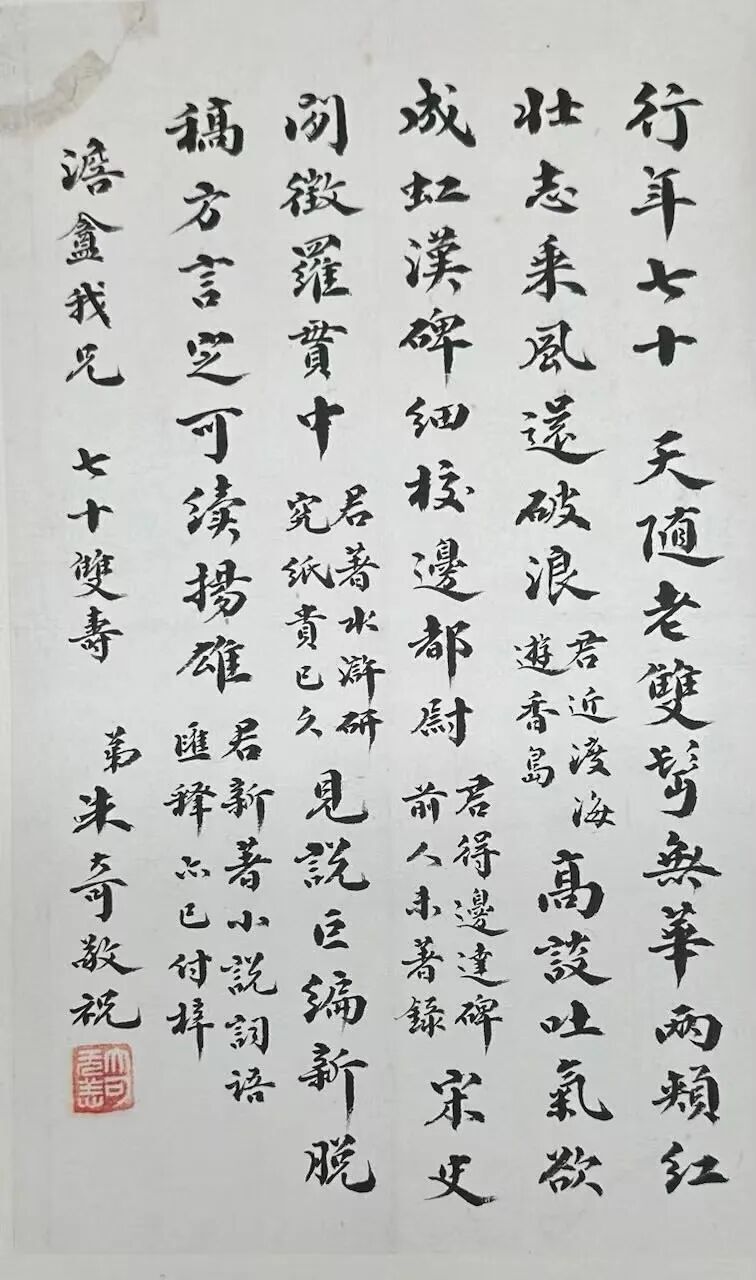 行年七十 天随老雙鬢無華兩頰紅
壯志乘風還破浪 君近渡海遊香島 高談吐氣欲
成虹漢碑細校邊都尉 君得邊達碑前人未著錄 宋史
閒徵羅貫中 君著水滸研究紙貴已久 見說巨編新脫
稿方言定可續揚雄 君新著小說詞語匯釋亦已付梓
澹盦我兄 七十雙壽 弟朱奇敬祝
大可无恙